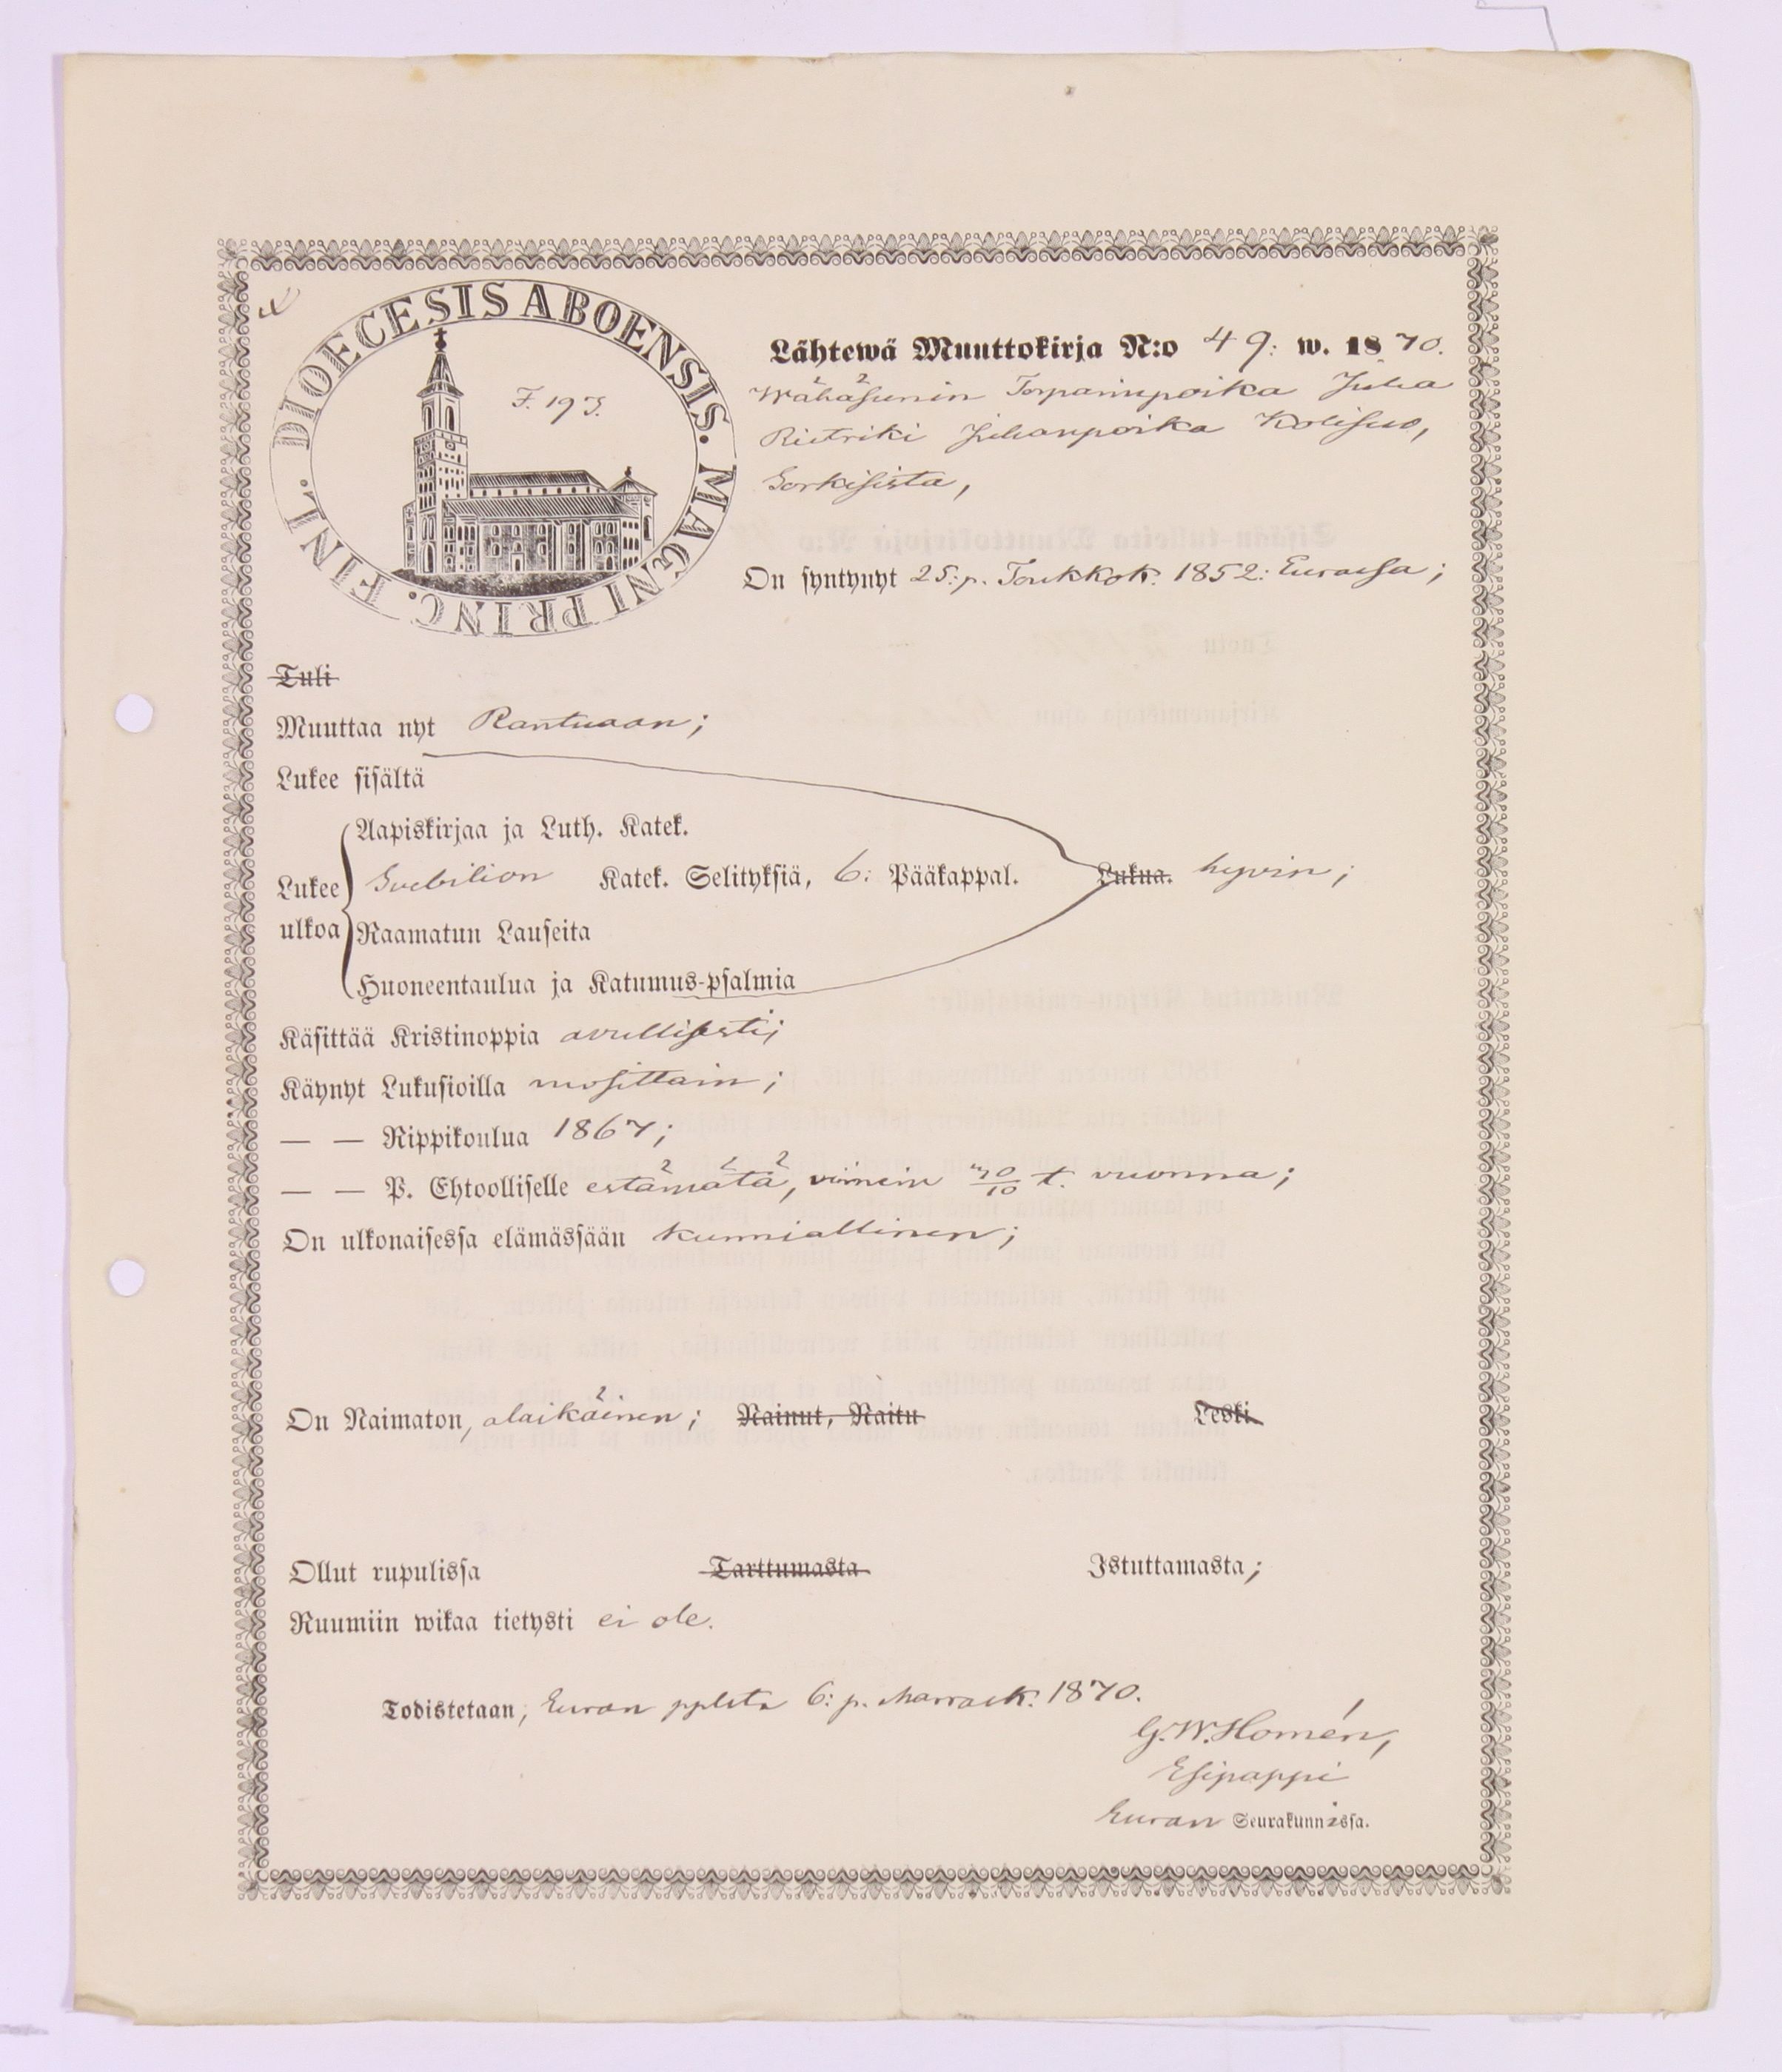 DIOECESIS ABOENSIS. MAGNI PRINC. FINL.
F. 193.
Lähtewä Muuttokirja N:o 49: w. 1870.
Juha
Juhanpoika
On syntynyt 25:p. Toukkok. 1852: Eurassa;
Tuli
Muuttaa nyt
Lukee sisältä
Aapiskirjaa ja Luth. Katek.
Lukee ulkoa Svebilion Katek. Selityksiä, 6: Pääkappal. Lukua. hyvin;
Raamatun Lauseita
Huoneentaulua ja Katumus-psalmia
Käsittää Kristinoppia avullisesti;
Käynyt Lukusioilla vuosittain;
— — Rippikoulua 1867;
— — P. Ehtoolliselle estämätä, viimein 30/10 t. vuonna;
On ulkonaisessa elämässään kunniallinen;
On Naimaton, alaikäinen; Nainut, Naitu Leski
Ollut rupulissa Tarttumasta Istuttamasta;
Ruumiin wikaa tietysti ei ole.
Todistetaan, Euran 6: p. Marrask. 1870.
G. W. Homén,
Esipappi
Euran Seurakunnissa.